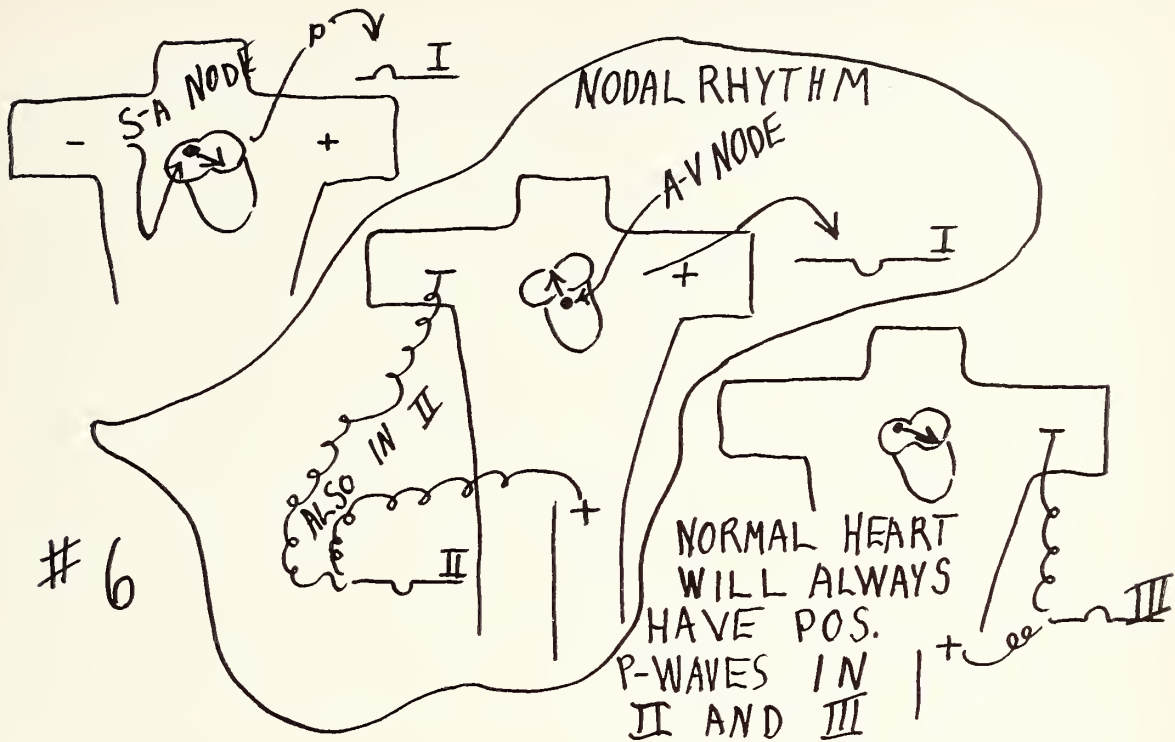 P
I
S-A NODE
-
+
NODAL RHYTHM
A-V NODE
I
+
ALSO IN II
+
II
# 6
NORMAL HEART
WILL ALWAYS
HAVE POS.
P-WAVES IN
II AND III
+
III